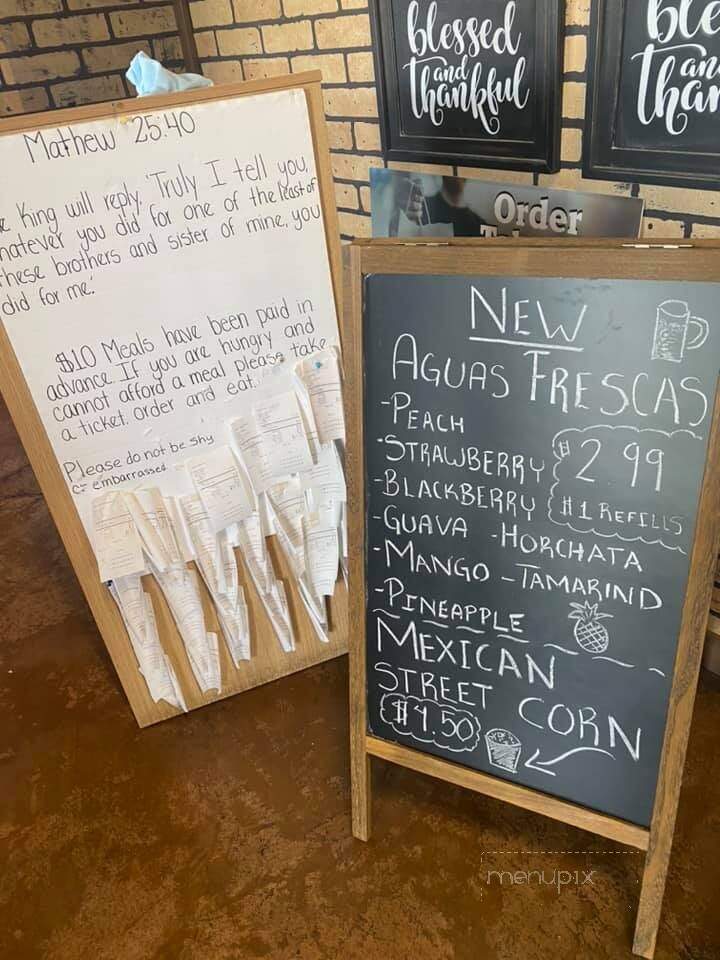 Mathew 25:40
King will reply, 'Truly I tell you,
whatever you did for one of the least of
these brothers and sister of mine, you
did for me.'
$10 Meals have been paid in
advance. If you are hungry and
cannot afford a meal please take
a ticket. order and eat.
Please do not be shy
embarrassed
blessed
and
thankful
Order
NEW
AGUAS FRESCAS
-PEACH
-STRAWBERRY $2.99
-BLACKBERRY $1 REFILLS
-GUAVA -HORCHATA
-MANGO -TAMARIND
-PINEAPPLE
MEXICAN
STREET CORN
menupix